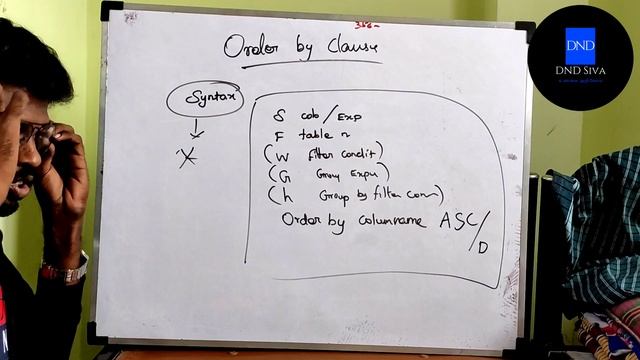 Order by Clause
Syntax
S cob/Exp
F table n
(W Filter condit)
(G Group Expn)
(h Group by filter con)
Order by Columname ASC/
D
DND
DND SIVA